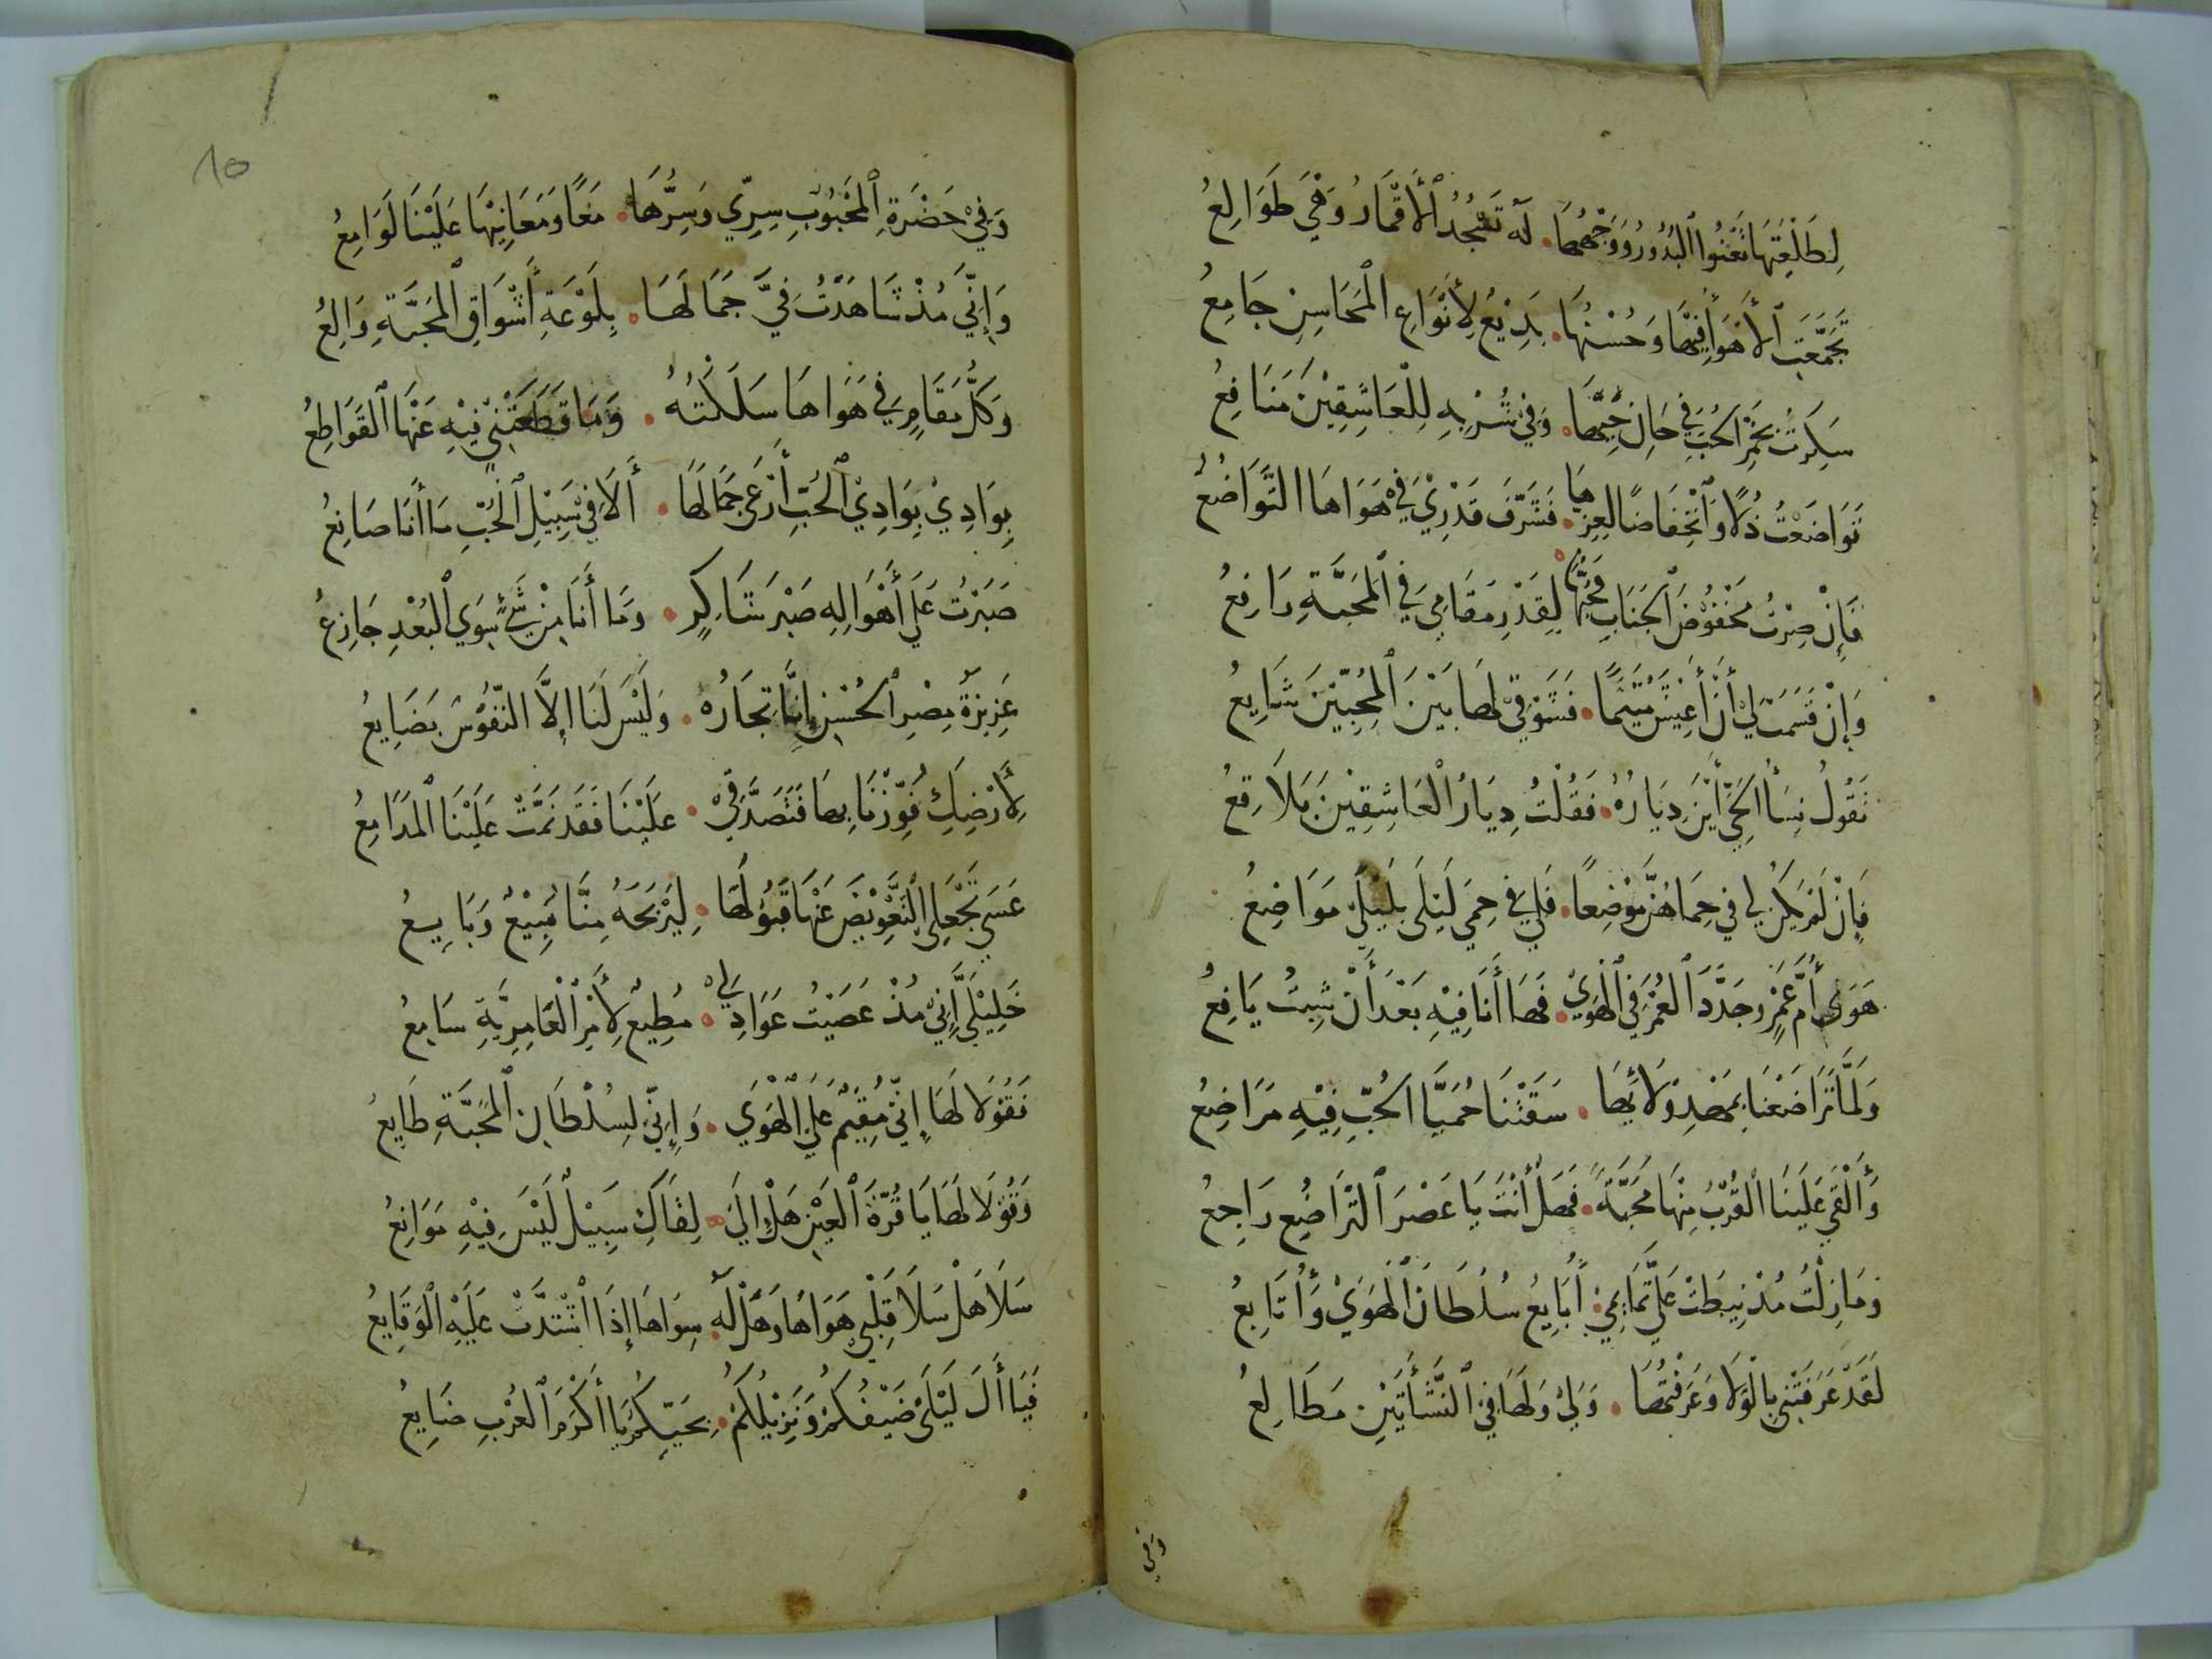 لِطَلْعَتِهَا تَعْنُوا ٱلْبُدُورُ وَوَجْهُهَا • لَهُ تَسْجُدُ ٱلْأَقْمَارُ وَهْيَ طَوَالِعُ
تَجَمَّعَتِ ٱلْأَهْوَا فِيهَا وَحُسْنُهَا • بَدِيْعٌ لِأَنْوَاعِ الْمَحَاسِنِ جَامِعُ
سَكِرْتُ بِخَمْرِ الْحُبِّ فِي حَانِ حَيِّهَا • وَفِيْ شُرْبِهِ لِلْعَاشِقِيْنَ مَنَافِعُ
تَوَاضَعْتُ ذُلًّا وَٱنْخِفَاضًا لِعِزِّهَا • فَشَرَّفَ قَدْرِيْ فِيْ هَوَاهَا التَّوَاضُعُ
فَإِنْ صِرْتُ مَخْفُوْضَ ٱلْجَنَابِ فَحُبُّهَا • لِقَدْرِ مَقَامِي فِي ٱلْمَحَبَّةِ رَافِعُ
وَإِنْ قَسَمَتْ لِيْ أَنْ أَعِيْشَ مُتَيَّمًا • فَشَوْقِيْ لَهَا بَيْنَ ٱلْمُحِبِّيْنَ شَايِعُ
تَقُوْلُ نِسَأُ الْحَيِّ أَيْنَ دِيَارُهُ • فَقُلْتُ دِيَارُ الْعَاشِقِيْنَ بَلَاقِعُ
فَإِنْ لَمْ يَكُنْ لِي فِي حِمَاهُنَّ مَوْضِعًا • فَلِي فِي حِمَي لَيْلَى بِلَيْلَي مَوَاضِعُ
هَوَى أُمِّ عَمْرٍو جَدَّدَ ٱلْعُمْرَ فِي ٱلْهَوَيْ • فَهَا أَنَا فِيْهِ بَعْدَ أَنْ شِبْتُ يَافِعُ
وَلَمَّا تَرَاضَعْنَا بِمَهْدِ وَلَائِهَا • سَقَتْنَا حُمَيَّا الْحُبِّ فِيْهِ مَرَاضِعُ
وَأَلْقَي عَلَيْنَا ٱلْقُرْبُ مِنْهَا مَحَبَّةً • فَهَلْ أَنْتَ يَا عَصْرَ ٱلتَّرَاضُعِ رَاجِعُ
وَمَا زِلْتُ مُذْ نِيطَتْ عَلَيَّ تَمَائِمِيْ • أُبَايِعُ سُلْطَانَ ٱلْهَوَيْ وَأُتَابِعُ
لَقَدْ عَرَفَتْنِي بِالْوَلَا وَعَرَفْتُهَا • وَلِيْ وَلَهَا فِي ٱلنَّشْأَتَيْنِ مَطَالِعُ
وَفِي
10
وَفِيْ حَضْرَةِ ٱلْمَحْبُوْبِ سِرِّي وَسِرُّهَا • مَعًا وَمَعَانِيْهَا عَلَيْنَا لَوَامِعُ
وَإِنِّي مُذْ شَاهَدْتُ فِيَّ جَمَالَهَا • بِلَوْعَةِ أَشْوَاقِ ٱلْمَحَبَّةِ وَالِعُ
وَكُلُّ مَقَامٍ فِي هَوَاهَا سَلَكْتُهُ • وَمَا قَطَعَتْنِيْ فِيْهِ عَنْهَا ٱلْقَوَاطِعُ
بِوَادِيْ بِوَادِيْ ٱلْحُبِّ أَرْعَى جَمَالَهَا • أَلَا فِيْ سَبِيْلِ ٱلْحُبِّ مَا أَنَا صَانِعُ
صَبَرْتُ عَلَى أَهْوَالِهِ صَبْرَ شَاكِرٍ • وَمَا أَنَا مِنْ شَيْءٍ سِوَي ٱلْبُعْدِ جَازِعُ
عَزِيزَةُ مِصْرِ ٱلْحُسْنِ إِنَّا تِجَارُهُ • وَلَيْسَ لَنَا إِلَّا النُّفُوْسُ بَضَايِعُ
لِأَرْضِكِ فَوَّزْنَا بِهَا فَتَصَدَّقِيْ • عَلَيْنَا فَقَدْ نَمَّتْ عَلَيْنَا ٱلْمَدَامِعُ
عَسَى تَجْعَلِي التَّعْوِيْضَ عَنْهَا قَبُوْلَهَا • لِيَرْبَحَهُ مِنَّا مَبِيْعٌ وَبَايِعُ
خَلِيْلَيَّ إِنِّيْ مُذْ عَصَيْتُ عَوَاذِلِيْ • مُطِيْعٌ لِأَمْرِ ٱلْعَامِرِيَّةِ سَامِعُ
فَقُوْلَا لَهَا إِنِّيْ مُقِيْمٌ عَلَي ٱلْهَوَي • وَإِنِّيْ لِسُلْطَانِ ٱلْمَحَبَّةِ طَايِعُ
وَقُوْلَا لَهَا يَا قُرَّةَ ٱلْعَيْنِ هَلْ إِلَى • لِقَاكِ سَبِيْلٌ لَيْسَ فِيْهِ مَوَانِعُ
سَلَا هَلْ سَلَا قَلْبِي هَوَاهَا وَهَلْ لَهُ • سِوَاهَا إِذَا اشْتَدَّتْ عَلَيْهِ ٱلْوَقَايِعُ
فَيَا أَلَ لَيْلَى ضَيْفُكُمْ وَنَزِيْلُكُمْ • بِحَيِّكُمُ يَا أَكْرَمَ ٱلْعُرْبِ ضَايِعُ